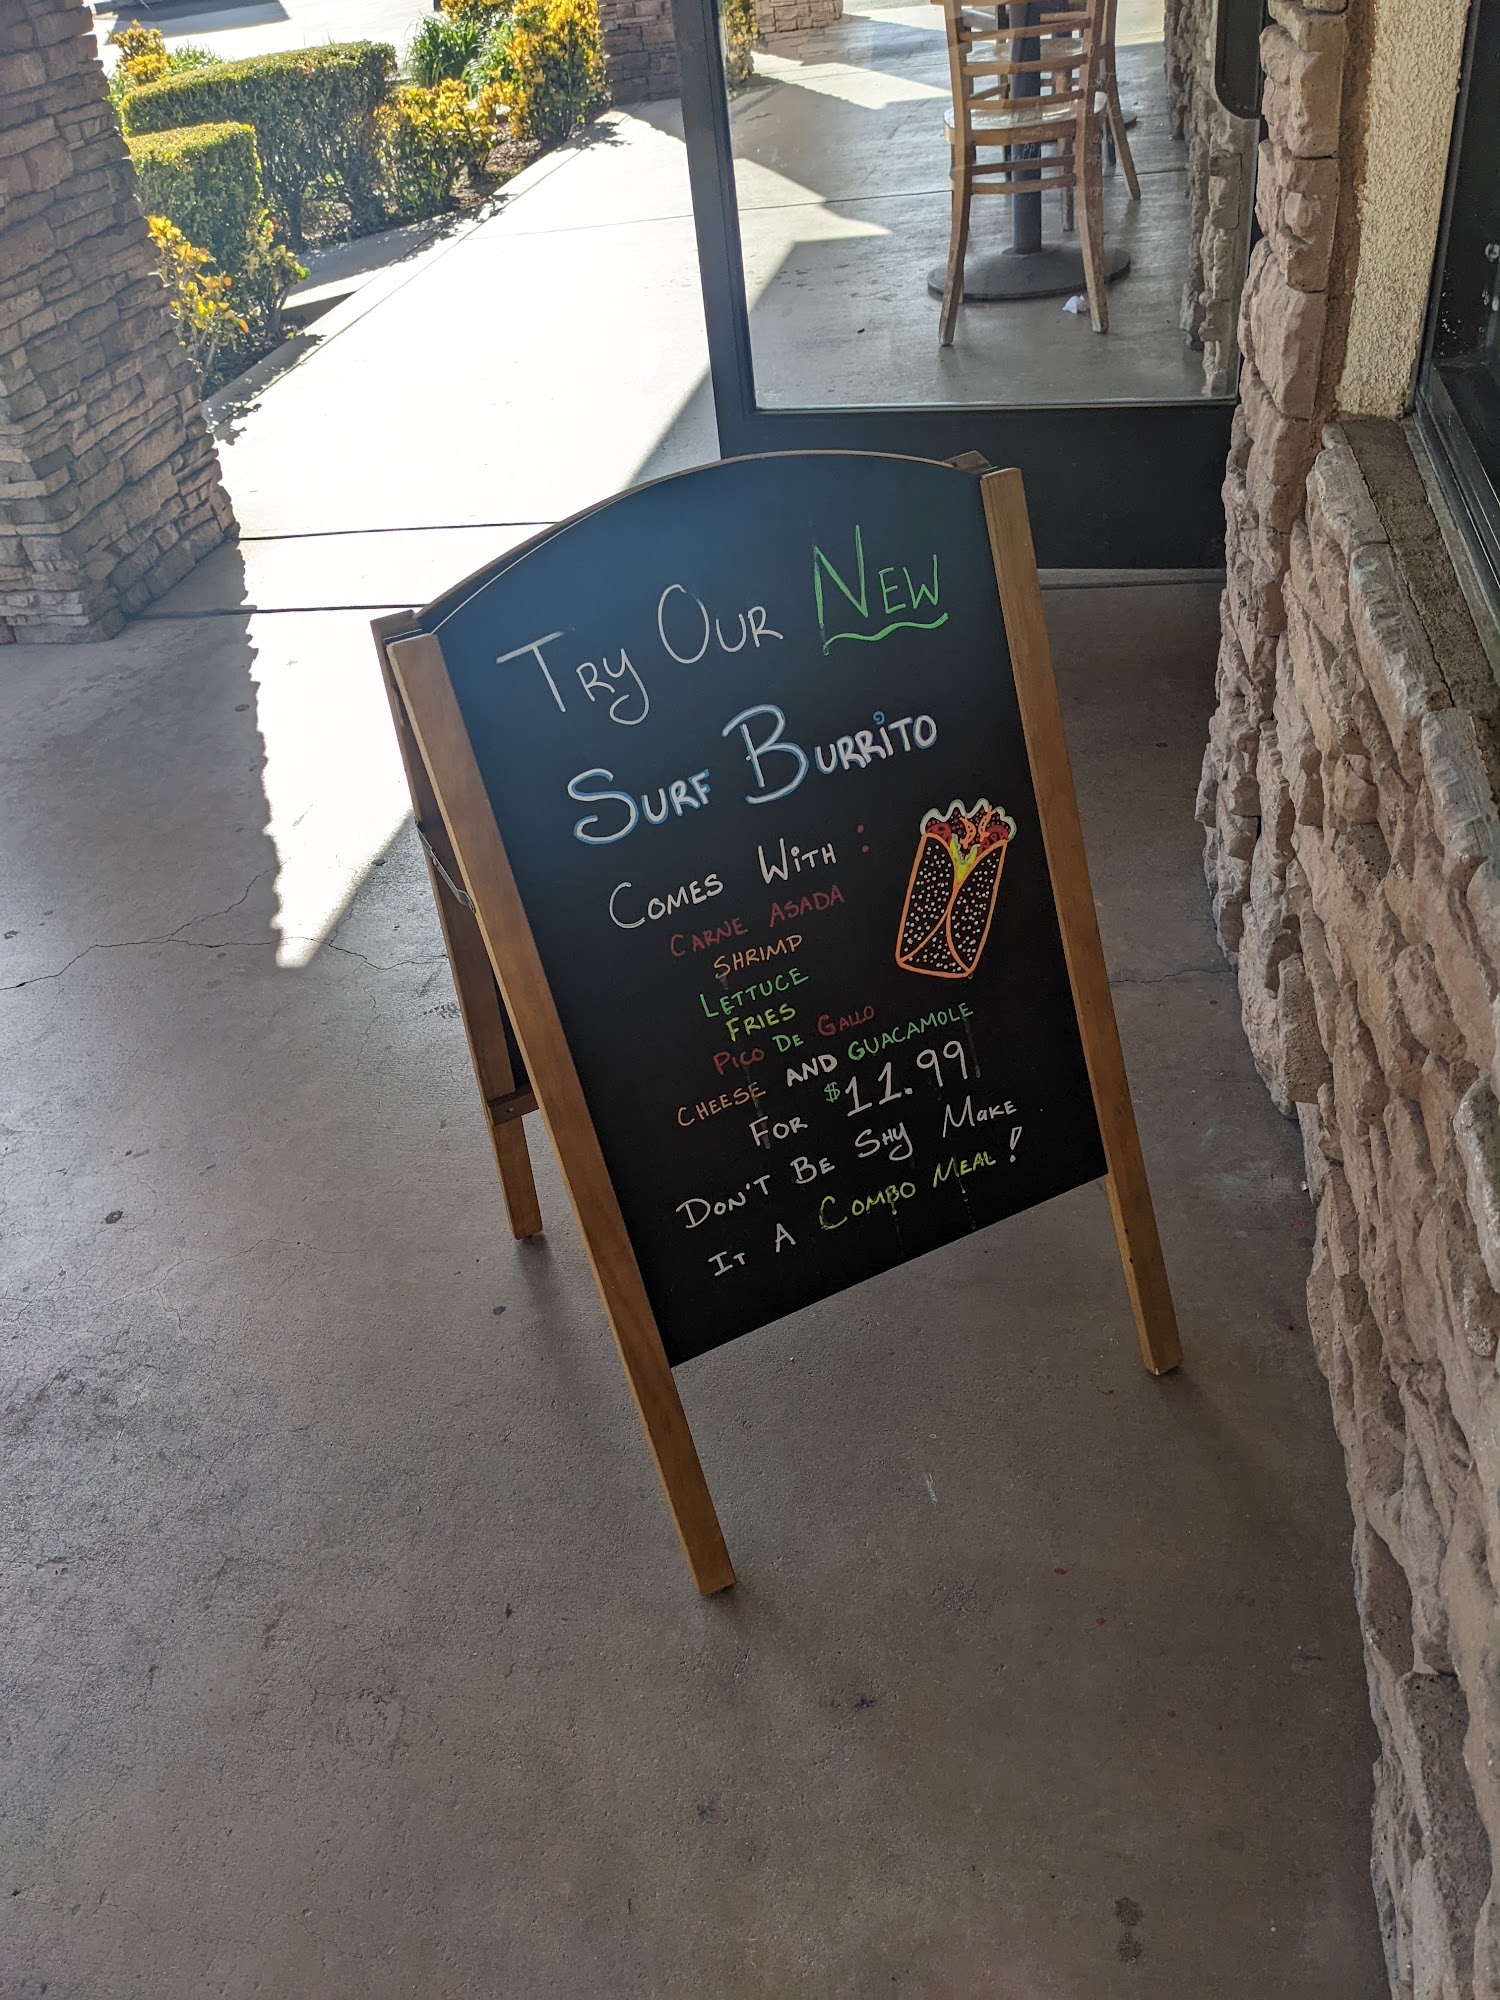 Try Our New
Surf Burrito
Comes With :
Carne Asada
Shrimp
Lettuce
Fries
Pico De Gallo
Cheese and Guacamole
For $11.99
Don't Be Shy Make
It A Combo Meal!